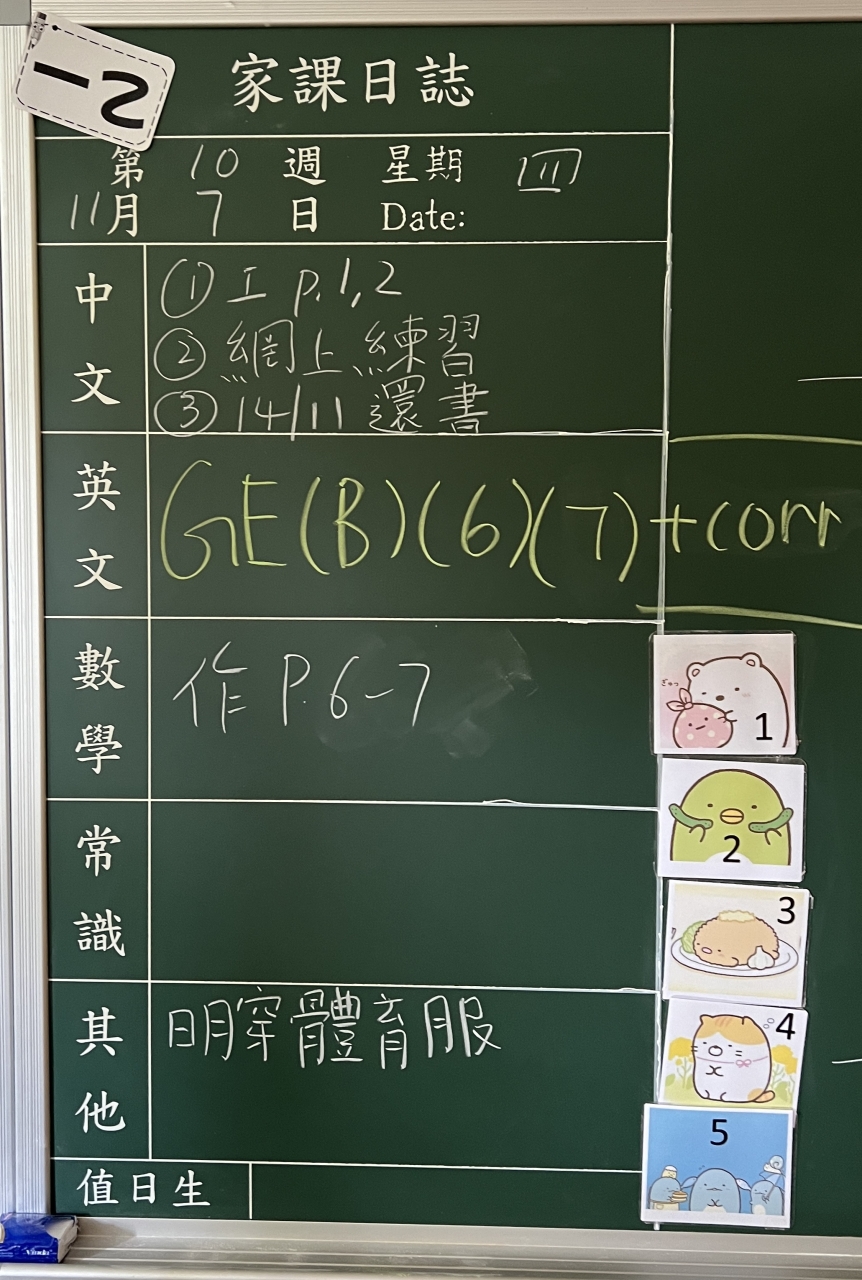 一乙
家課日誌
第 10 週 星期 四
11月 7 日 Date:
中文
① 工 p.1,2
② 網上練習
③ 14/11 還書
英文
GE(B)(6)(7)+corr
數學
作 P.6-7
常識
其他
明穿體育服
值日生
1
2
3
4
5